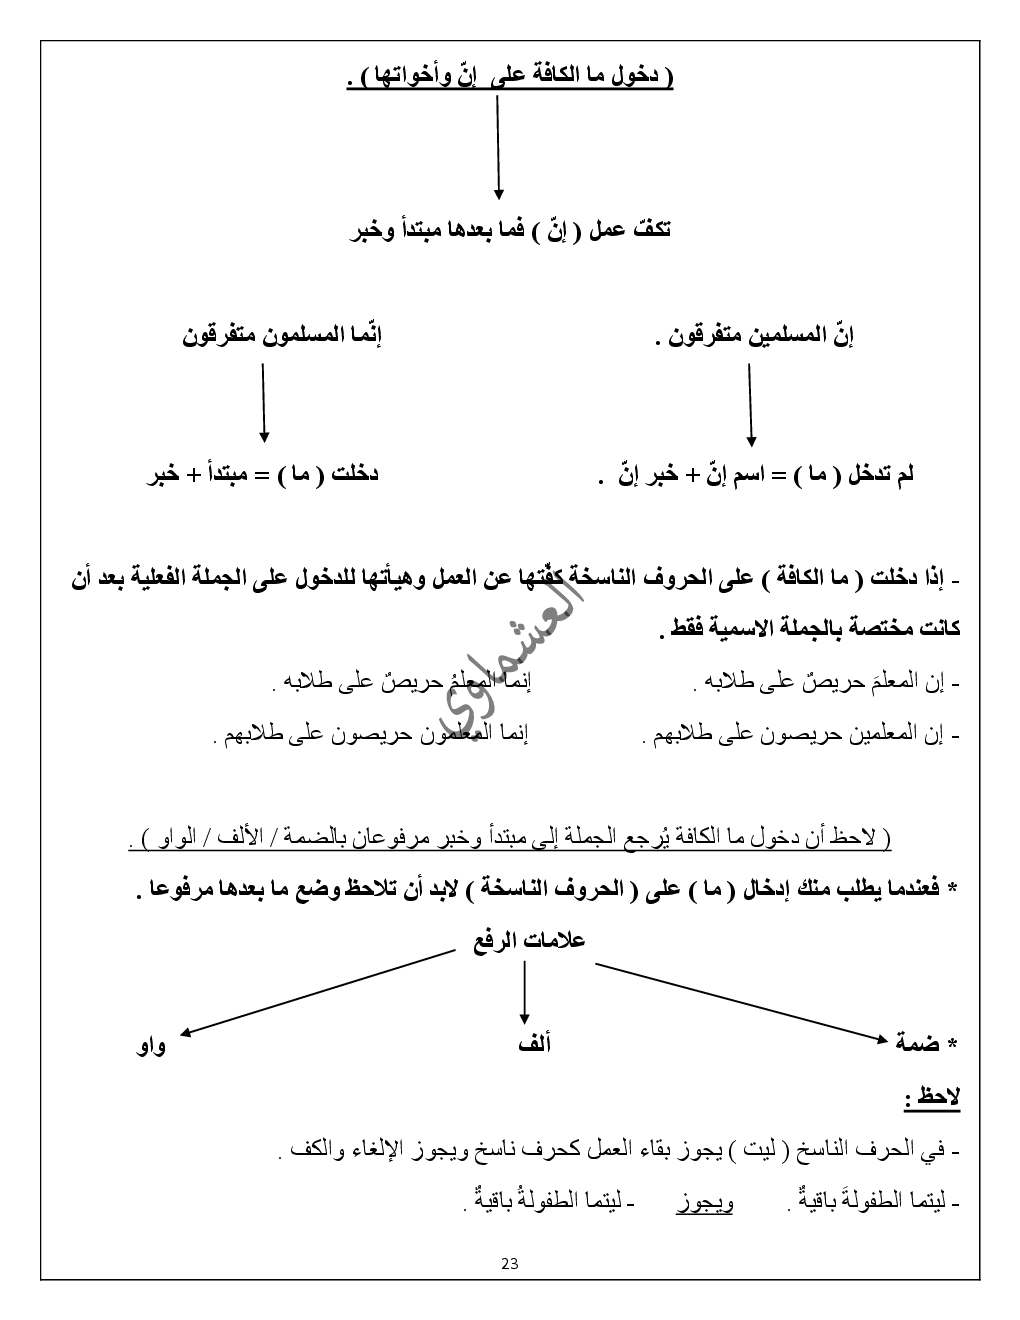 ( دخول ما الكافة على إنّ وأخواتها ) .
تكفّ عمل ( إنّ ) فما بعدها مبتدأ وخبر
إنّ المسلمين متفرقون . إنّما المسلمون متفرقون
لم تدخل ( ما ) = اسم إنّ + خبر إنّ . دخلت ( ما ) = مبتدأ + خبر
- إذا دخلت ( ما الكافة ) على الحروف الناسخة كفّتها عن العمل وهيأتها للدخول على الجملة الفعلية بعد أن
كانت مختصة بالجملة الاسمية فقط .
- إن المعلمَ حريصٌ على طلابه . إنما المعلمُ حريصٌ على طلابه .
- إن المعلمين حريصون على طلابهم . إنما المعلمون حريصون على طلابهم .
العشماوي
( لاحظ أن دخول ما الكافة يُرجع الجملة إلى مبتدأ وخبر مرفوعان بالضمة / الألف / الواو ) .
* فعندما يطلب منك إدخال ( ما ) على ( الحروف الناسخة ) لابد أن تلاحظ وضع ما بعدها مرفوعا .
علامات الرفع
* ضمة ألف واو
لاحظ :
- في الحرف الناسخ ( ليت ) يجوز بقاء العمل كحرف ناسخ ويجوز الإلغاء والكف .
- ليتما الطفولةَ باقيةٌ . ويجوز - ليتما الطفولةُ باقيةٌ .
23